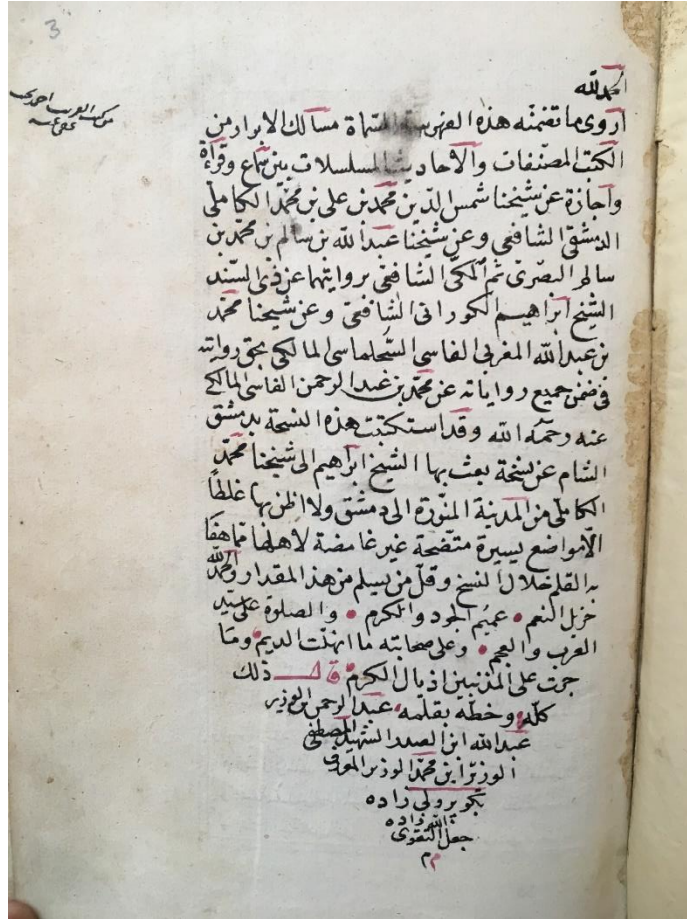 3
من كتب العرب احمدى
عفى عنه
الحمد لله
اروى ما تضمنه هذه الفهرسة المسماة مسالك الابرار من
الكتب المصنفات والاحاديث المسلسلات بين سماع وقرآءة
واجازة عن شيخنا شمس الدين محمد بن على بن محمد الكاملى
الدمشقى الشافعى وعن شيخنا عبد الله بن سالم بن محمد بن
سالم البصرى ثم المكى الشافعى بروايتهما عن ذى السند
الشيخ ابراهيم الكورانى الشافعى وعن شيخنا محمد
بن عبد الله المغربى الفاسى السجلماسى المالكى بحق روايته
فى ضمن جميع رواياته عن محمد بن عبد الرحمن الفاسى المالكى
عنه رحمه الله وقد استكتبت هذه النسخة بدمشق
الشام عن نسخة بعث بها الشيخ ابراهيم الى شيخنا محمد
الكاملى من المدينة المنورة الى دمشق ولا اظن بها غلطاً
الا مواضع يسيرة متضحة غير غامضة لاهلها مما هفا
به القلم خلال النسخ وقل من يسلم من هذا المقدار والحمد لله
جزيل النعم • عميم الجود والكرم • والصلوة على سيد
العرب والعجم • وعلى صحابته ما انهلت الديم • وما
جرت على المذنبين اذيال الكرم • قال ذلك
كله • وخطه بقلمه • عبد الرحمن ابن الوزير
عبد الله ابن الصدر الشهيد المصطفى
الوزير ابن محمد الوزير المعروف
بكوبرولى زاده
جعل الله زاده
التقوى
م م